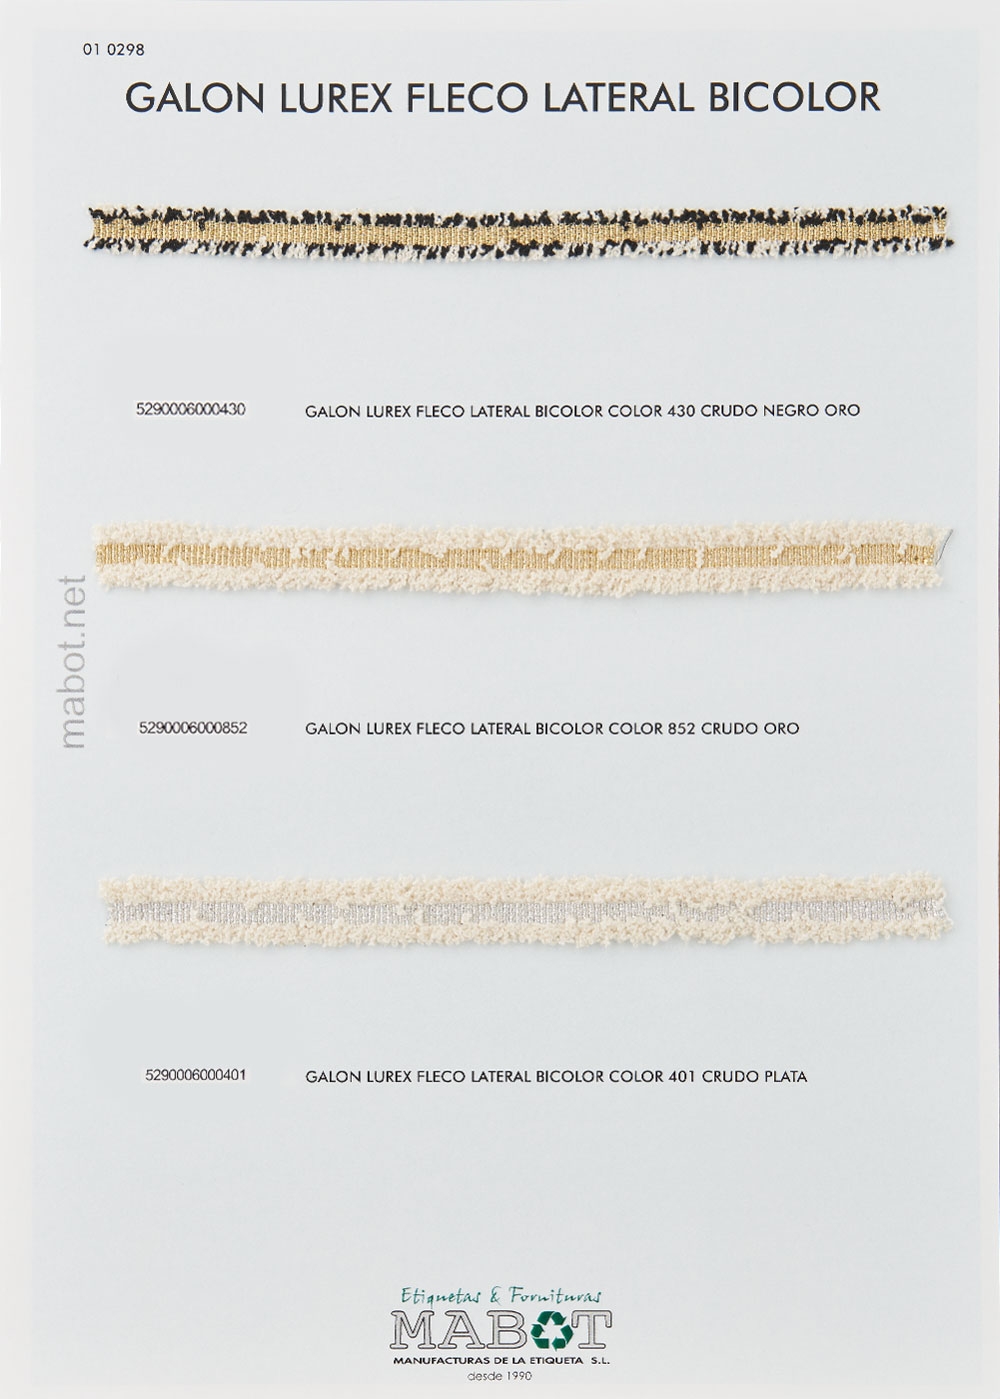 01 0298
GALON LUREX FLECO LATERAL BICOLOR
5290006000430 GALON LUREX FLECO LATERAL BICOLOR COLOR 430 CRUDO NEGRO ORO
mabot.net
5290006000852 GALON LUREX FLECO LATERAL BICOLOR COLOR 852 CRUDO ORO
5290006000401 GALON LUREX FLECO LATERAL BICOLOR COLOR 401 CRUDO PLATA
Etiquetas & Fornituras
MABOT
MANUFACTURAS DE LA ETIQUETA S.L.
desde 1990